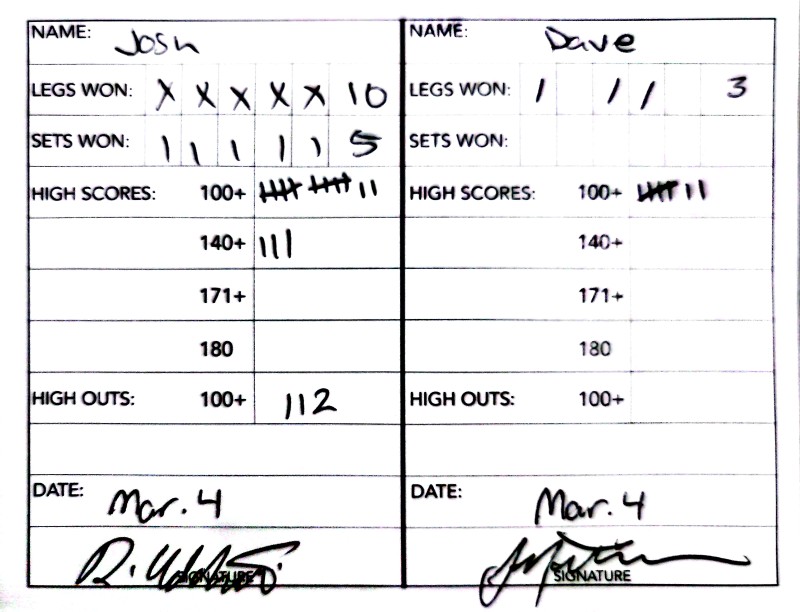 NAME: Josh
LEGS WON: X X X X X 10
SETS WON: 1 1 1 1 1 5
HIGH SCORES: 100+ |||| |||| ||
140+ |||
171+
180
HIGH OUTS: 100+ 112
DATE: Mar. 4
SIGNATURE
NAME: Dave
LEGS WON: / / / 3
SETS WON:
HIGH SCORES: 100+ |||| ||
140+
171+
180
HIGH OUTS: 100+
DATE: Mar. 4
SIGNATURE